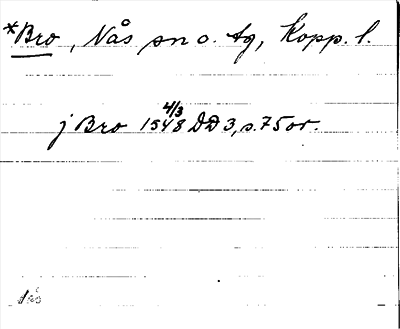 *Bro, Nås sn o. tg, Kopp. l.
j Bro 1548 4/3 DD 3, s. 75 or.
Nås